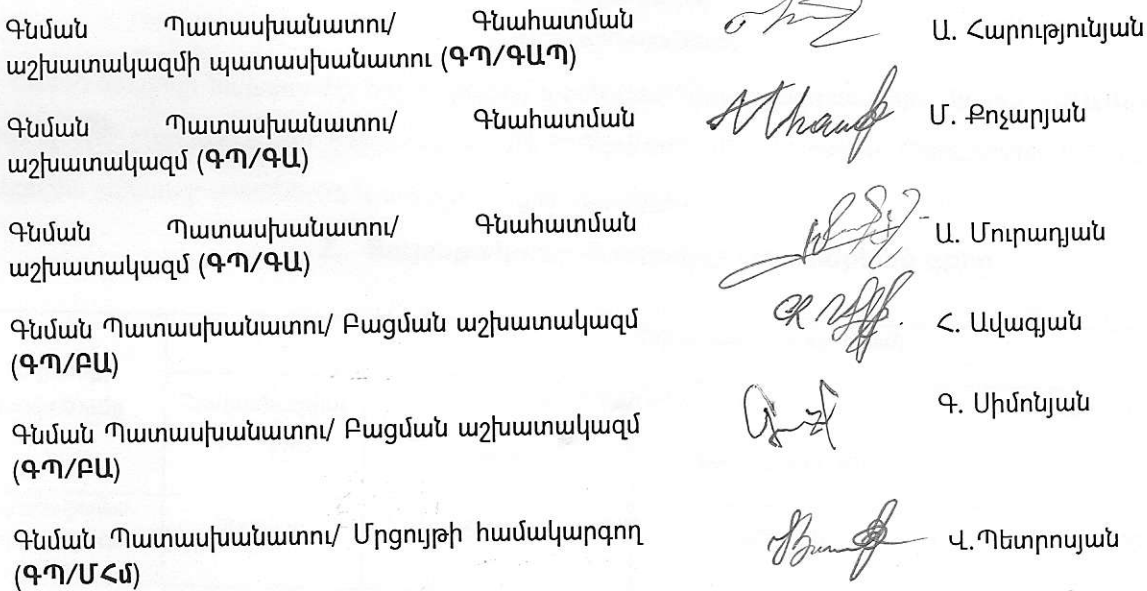 Գնման Պատասխանատու/ Գնահատման
աշխատակազմի պատասխանատու (ԳՊ/ԳԱՊ)
Ա. Հարությունյան
Գնման Պատասխանատու/ Գնահատման
աշխատակազմ (ԳՊ/ԳԱ)
Մ. Քոչարյան
Գնման Պատասխանատու/ Գնահատման
աշխատակազմ (ԳՊ/ԳԱ)
Ա. Մուրադյան
Գնման Պատասխանատու/ Բացման աշխատակազմ
(ԳՊ/ԲԱ)
Հ. Ավագյան
Գնման Պատասխանատու/ Բացման աշխատակազմ
(ԳՊ/ԲԱ)
Գ. Սիմոնյան
Գնման Պատասխանատու/ Մրցույթի համակարգող
(ԳՊ/ՄՀմ)
Վ.Պետրոսյան